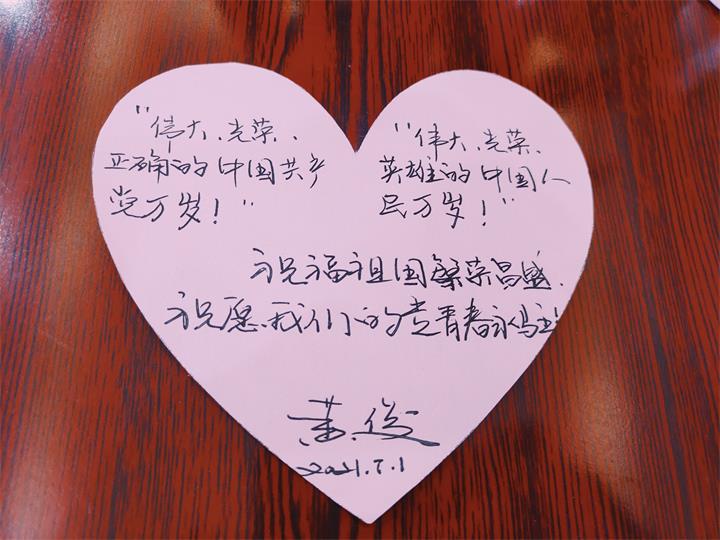 “伟大、光荣、
正确的中国共产
党万岁！”
“伟大、光荣、
英雄的中国人
民万岁！”
祝福祖国繁荣昌盛.
祝愿我们的党青春永驻
黄俊
2021.7.1